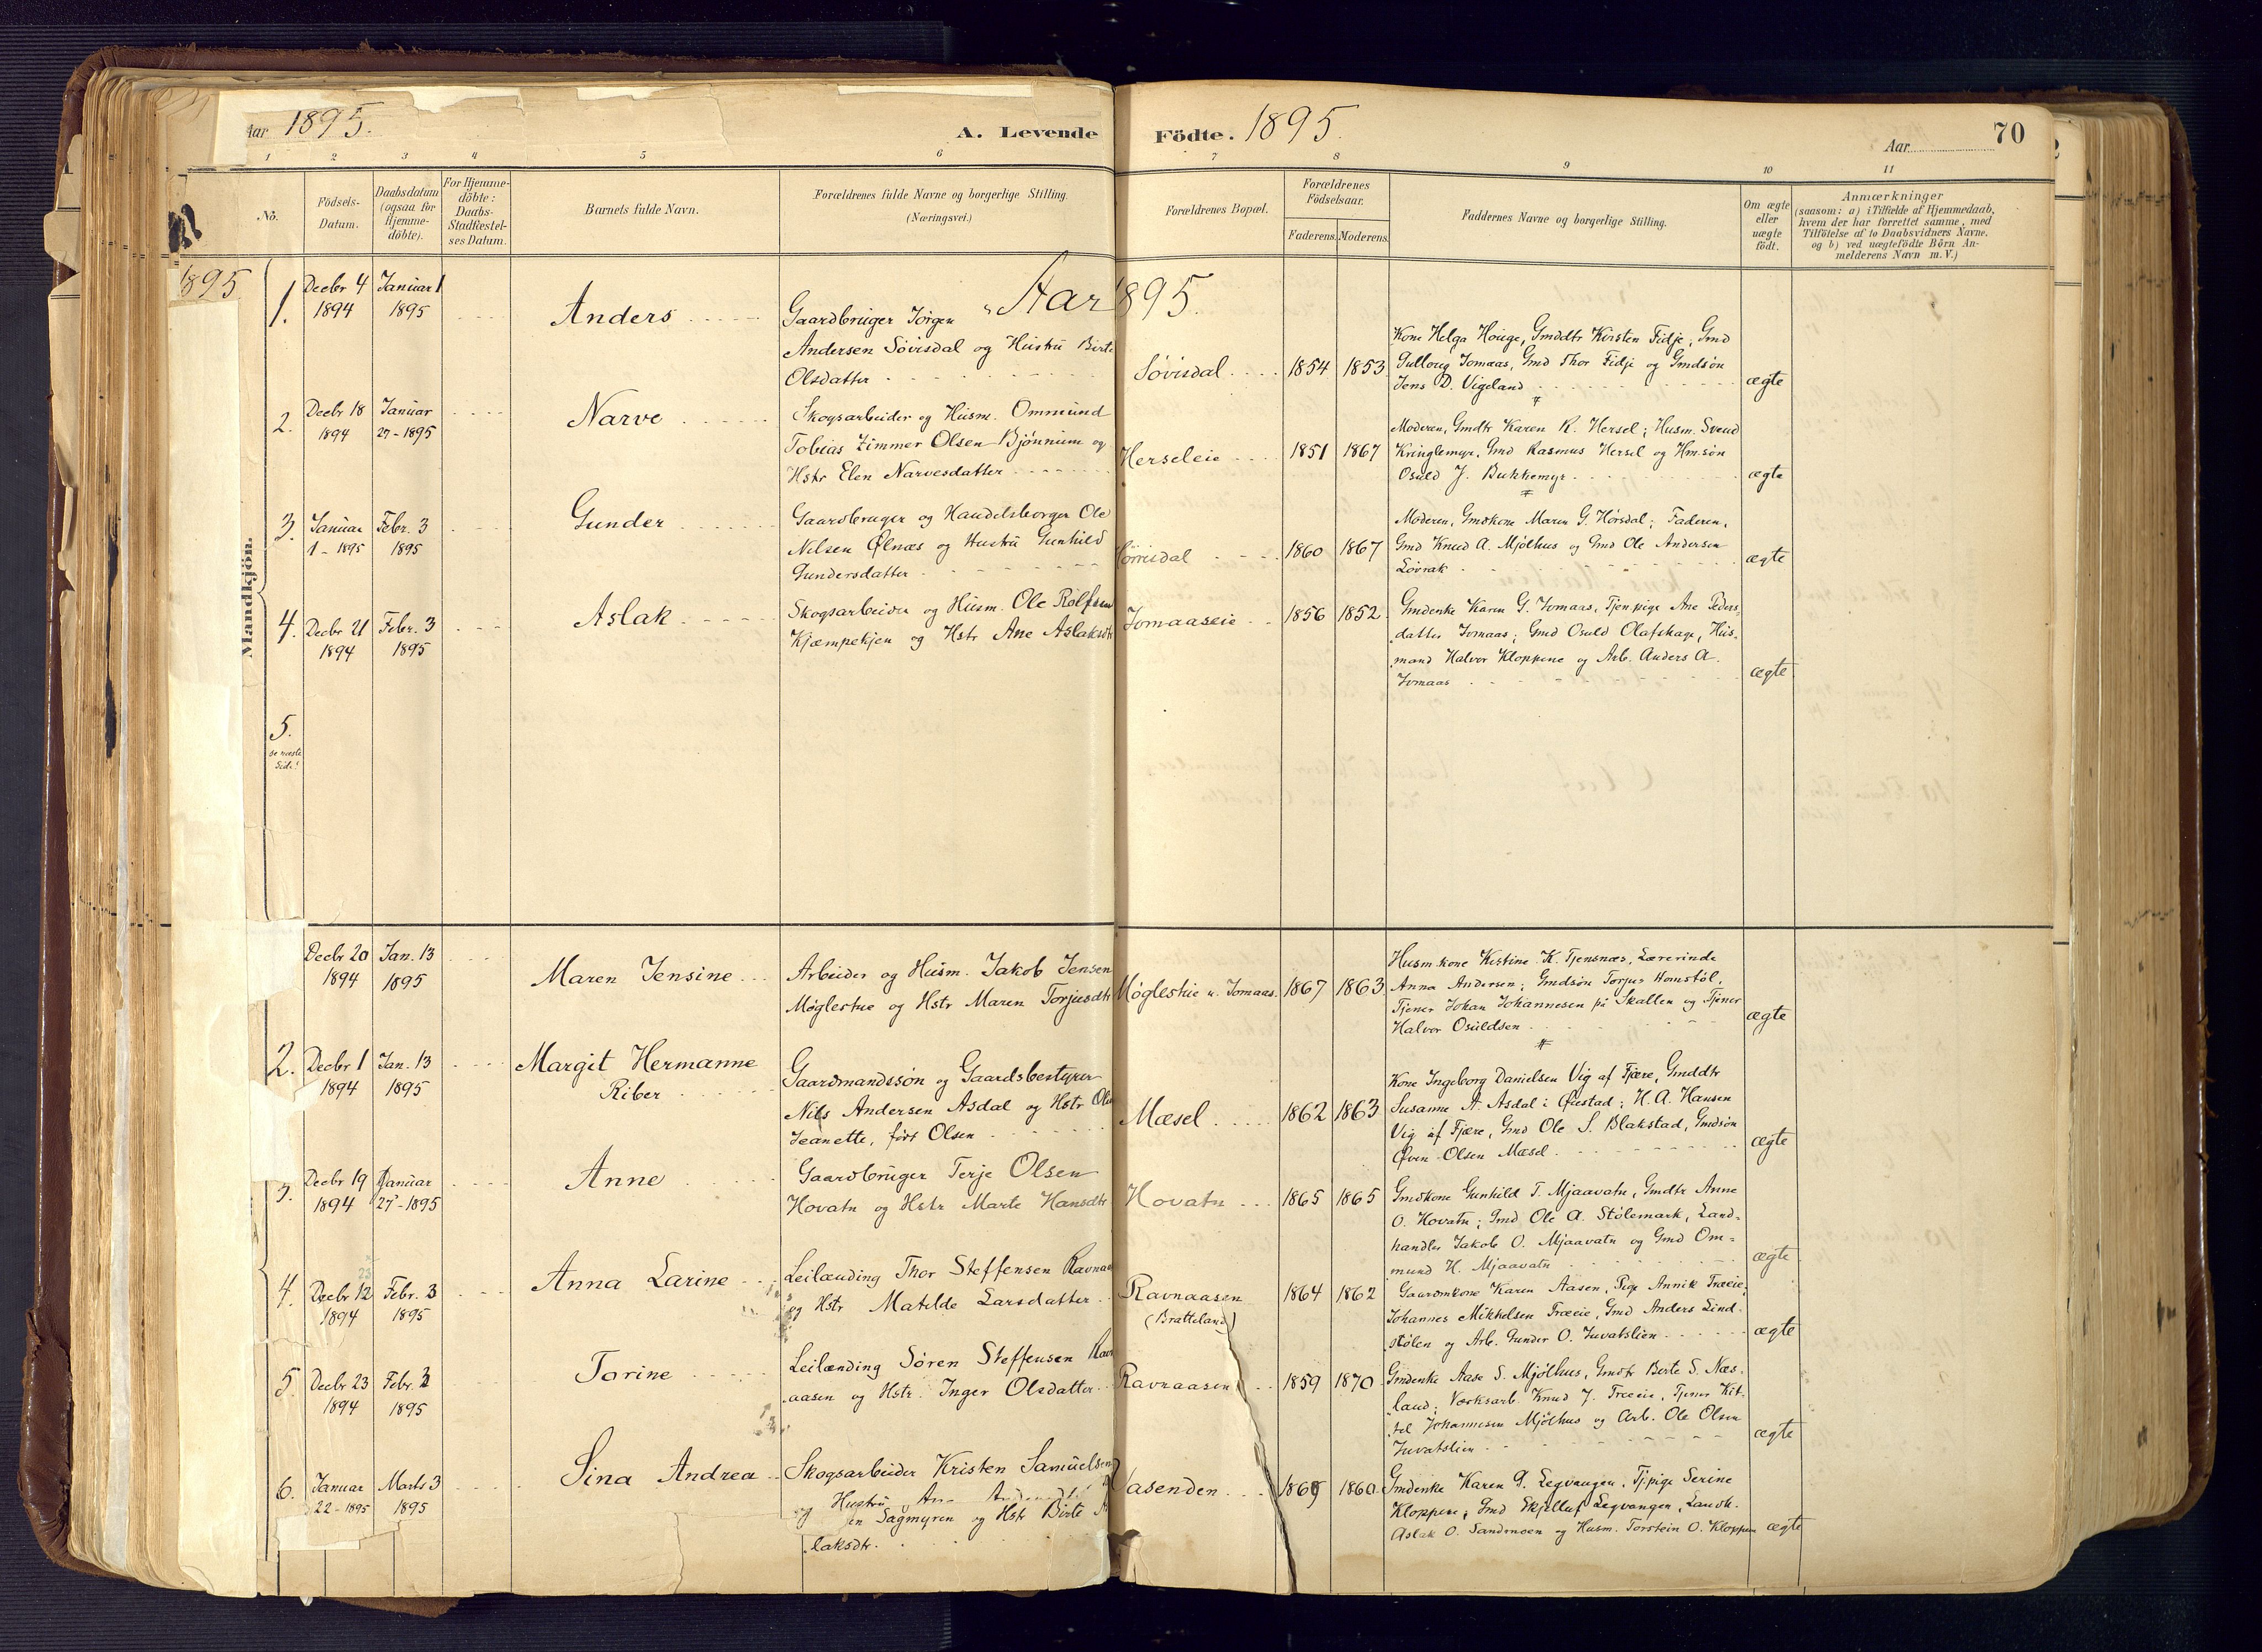 Aar 1895.
A. Levende Födte. 1895.
Aar
70
1 2 3 4 5 6 7 8 9 10 11
Nö.
Födsels-
Datum.
Daabsdatum
(ogsaa for
Hjemme-
döbte).
For Hjemme-
döbte:
Daabs-
Stadfæstel-
ses Datum.
Barnets fulde Navn.
Forældrenes fulde Navne og borgerlige Stilling.
(Næringsvei.)
Forældrenes Bopæl.
Forældrenes
Födselsaar.
Faderens.
Moderens.
Faddernes Navne og borgerlige Stilling.
Om ægte
eller
uægte
födt.
Anmærkninger
(saasom: a) i Tilfælde af Hjemmedaab,
hvem der har forrettet samme, med
Tilföielse af to Daabsvidners Navne.
og b) ved uægtefödte Börn An-
melderens Navn m. V.)
1895
Aar 1895.
Mandkjön.
1.
Decbr 4
1894
Januar 1
1895
Anders
Gaardbruger Jörgen
Andersen Sövisdal og Hustru Birte
Olsdatter
Sövisdal
1854
1853
Kone Helga Houge, Gmddtr Kirsten Fidje, Gmd
Gullovig Tomaas, Gmd Thor Fidje og Gmdsön
Jens D. Vigeland
ægte
2.
Decbr 18
1894
Januar
27-1895
Narve
Skogsarbeider og Husm. Ommund
Tobias Zimmer Olsen Bjönnum og
Hstr Elen Narvesdatter
Herseleie
1851
1867
Moderen, Gmdtr Karen R. Hersel; Husm. Svend
Kringlemyr, Gmd Rasmus Hersel og Hm.sön
Osuld J. Bukkemyr
ægte
3.
Januar
1-1895
Febr. 3
1895
Gunder
Gaardbruger og Handelsborger Ole
Nilsen Ølnæs og Hustru Gunhild
Gundersdatter
1860
1867
Moderen, Gmdkone Maren G. Hörsdal; Faderen,
Gmd Knud A. Mjölhus og Gmd Ole Andersen
Lövrak
ægte
4.
Decbr 21
1894
Febr. 3
1895
Aslak
Skogsarbeider og Husm. Ole Rolfsen
Kjæmpekjen og Hstr Ane Aslaksdtr
Tomaaseie
1856
1852
Gmdenke Karen G. Tomaas, Tjen.pige Ane Peders
datter Tomaas; Gmd Osuld Olafskage, Hus-
mand Halvor Kloppene og Arb. Anders A.
Tomaas
ægte
5.
Se næste
Side!
Decbr 20
1894
Jan. 13
1895
Maren Jensine
Arbeider og Husm. Jakob Jensen
Möglestue og Hstr Maren Torjusdtr
Möglestue u. Tomaas.
1867
1863
Husm.kone Kistine K. Tjensnæs, Lærerinde
Anna Andersen; Gmdsön Torjus Homstöl,
Tjener Johan Johannesen på Skallen og Tjener
Halvor Osuldsen
ægte
2.
Decbr 1
1894
Jan. 13
1895
Margit Hermanne
Riber
Gaardmandssön og Gaardsbestyrer
Nils Andersen Asdal og Hstr
Jeanette, födt Olsen
Mæsel
1862
1863
Kone Ingeborg Danielsen Vig af Fjære, Gmddtr
Susanne A. Asdal i Øiestad; H. A. Hansen
Vig af Fjære, Gmd Ole S. Blakstad, Gmdsön
Øven Olsen Mæsel
ægte
3.
Decbr 19
1894
Januar
27-1895
Anne
Gaardbruger Terje Olsen
Hovatn og Hstr Marte Hansdtr
Hovatn
1865
1865
Gmdkone Gunhild T. Mjaavatn, Gmdtr Anne
O. Hovatn; Gmd Ole A. Stölemark, Land-
handler Jakob O. Mjaavatn og Gmd Om-
mund H. Mjaavatn
ægte
4.
23
Decbr 12
1894
Febr. 3
1895
Anna Larine
Leilænding Thor Steffensen
og Hstr Matilde Larsdatter
Ravnaasen
(Bratteland)
1864
1862
Gaardmkone Karen Aasen, Pige Annik Træeie,
Johannes Mikkelsen Træeie, Gmd Anders Lind-
stölen og Arb. Gunder O. Juvatslien
ægte
5.
Decbr 23
1894
Febr. 3
1895
Torine
Leilænding Sören Steffensen Rav
aasen og Hstr. Inger Olsdatter
Ravnaasen
1859
1870
Gmdenke Aase S. Mjölhus, Gmdtr Birte S. Næs-
land; Værksarb. Knud J. Træeie, Tjener Kit-
tel Johannesen Mjölhus og Arb. Ole Olsen
Juvatslien
ægte
6.
Januar
22-1895
Marts 3
1895
Sina Andrea
Skogsarbeider Kristen Samuelsen
og Hustru
en Sagmyren og Hstr Birte
laksdtr.
Vasenden
1869
1860
Gmdenke Karen G. Legvangen, Tj.pige Serine
Kloppene; Gmd Skjelluf Legvangen, Landh.
Aslak O. Sandmoen og Husm. Torstein O. Kloppen
ægte